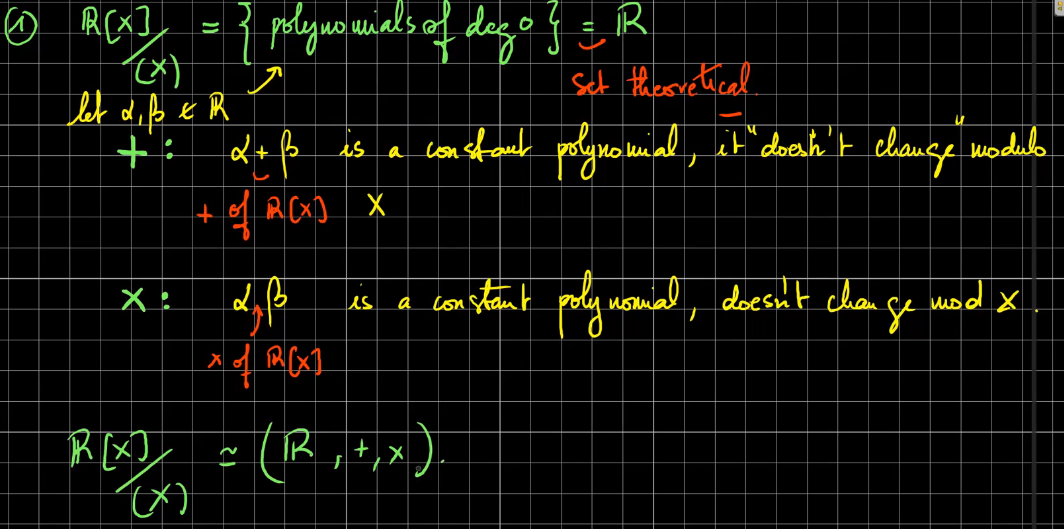 ① ℝ[X]/(X) = { polynomials of deg 0 } = ℝ
set theoretical.
let α, β ∈ ℝ
+ : α + β is a constant polynomial, it "doesn't change" modulo
+ of ℝ[X] X
× : α β is a constant polynomial, doesn't change mod X.
× of ℝ[X]
ℝ[X]/(X) ≃ (ℝ, +, ×).